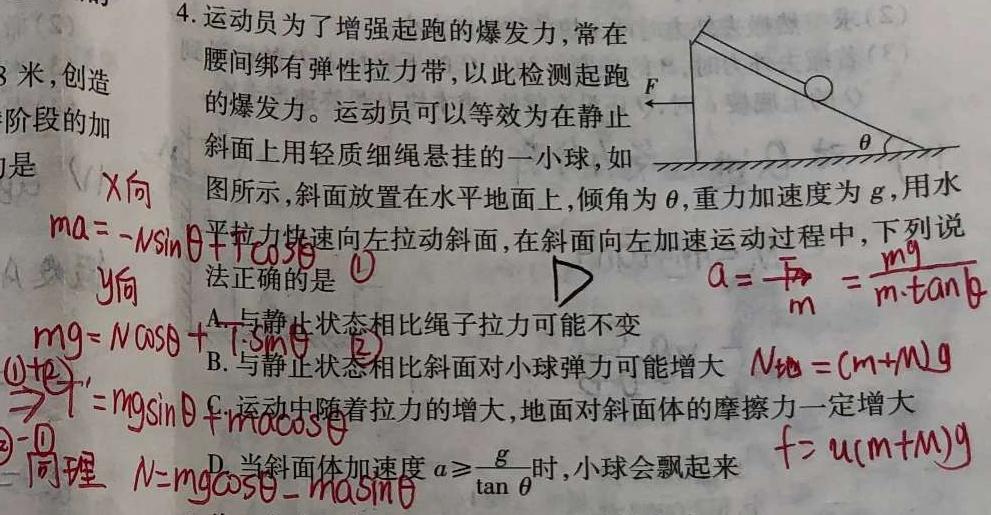 4. 运动员为了增强起跑的爆发力,常在
腰间绑有弹性拉力带,以此检测起跑
的爆发力。运动员可以等效为在静止
斜面上用轻质细绳悬挂的一小球,如
图所示,斜面放置在水平地面上,倾角为θ,重力加速度为g,用水
平拉力快速向左拉动斜面,在斜面向左加速运动过程中,下列说
法正确的是
D
A. 与静止状态相比绳子拉力可能不变
B. 与静止状态相比斜面对小球弹力可能增大
C. 运动中随着拉力的增大,地面对斜面体的摩擦力一定增大
D. 当斜面体加速度 a≥g/tan θ时,小球会飘起来
F
θ
8米,创造
阶段的加
是
X向
ma=-Nsinθ+Tcosθ ①
y向
mg=Ncosθ+T·sinθ ②
①+②
⇒T'=mgsinθ+macosθ
②-①
同理 N=mgcosθ-masinθ
a= = mg/m·tanθ
N地=(m+M)g
f=u(m+M)g